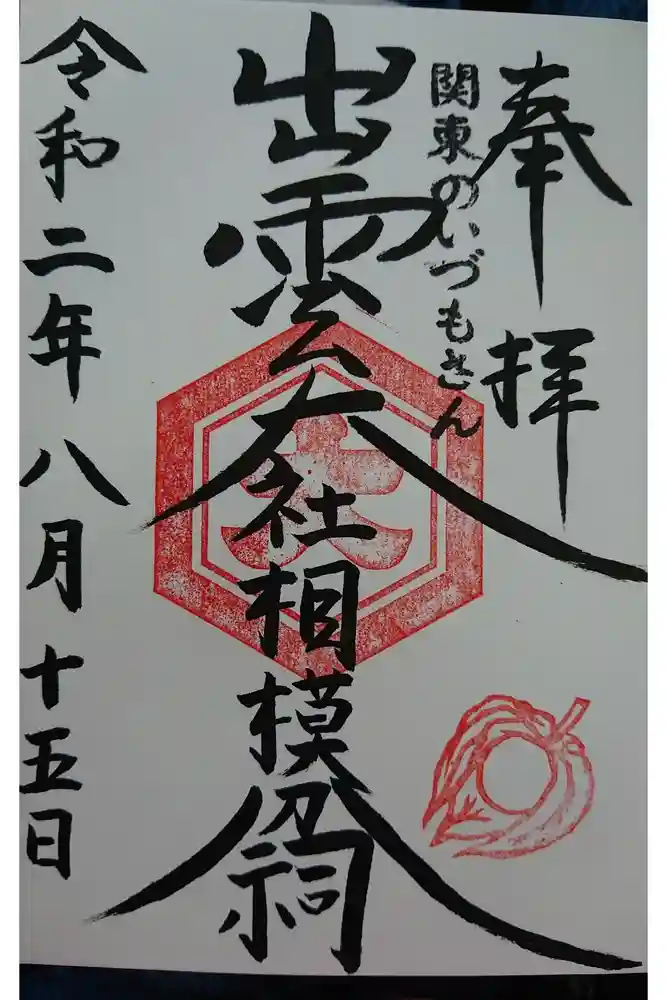 奉拝
関東のいづもさん
出雲大社相模分祠
大
令和二年八月十五日